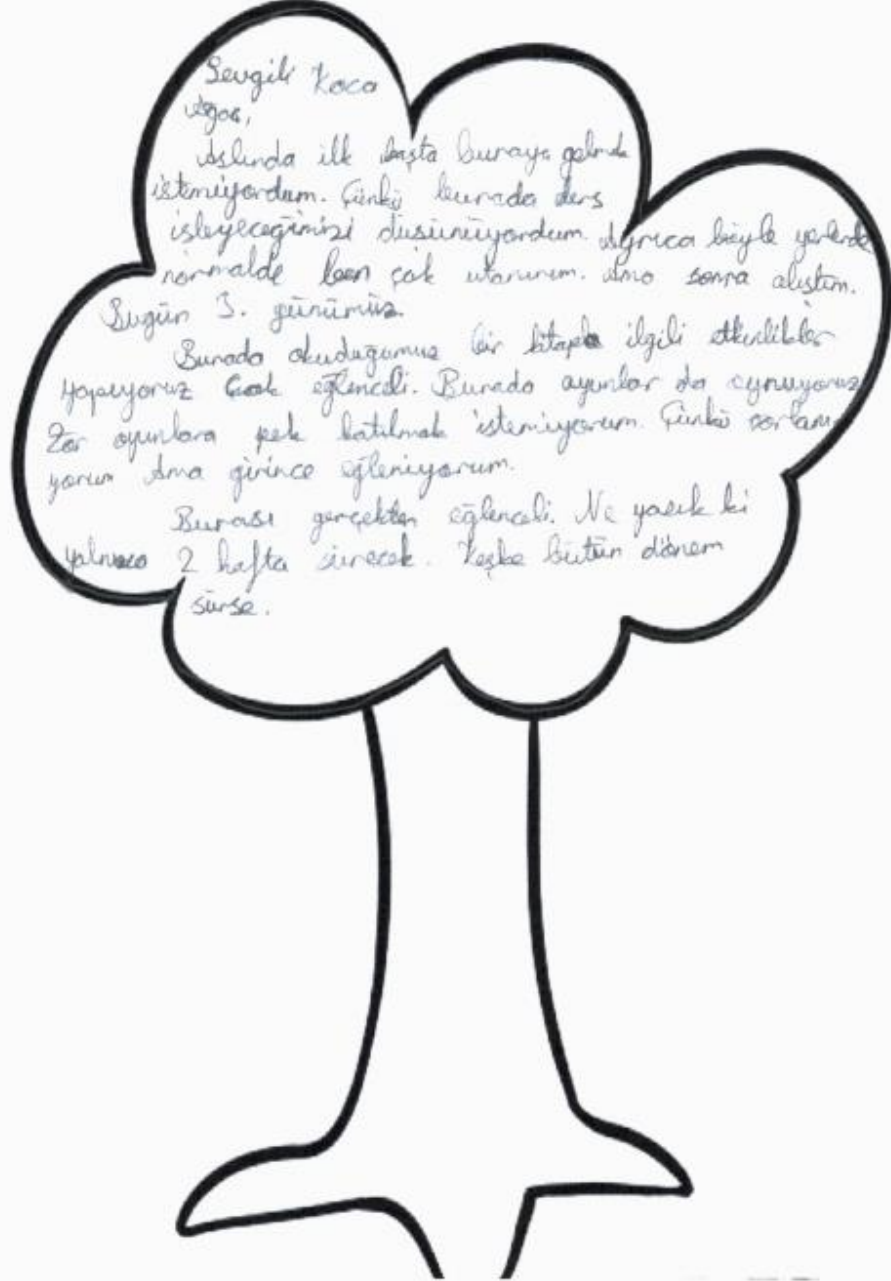 Sevgili Koca
Ağaç,
Aslında ilk başta buraya gelmek
istemiyordum. Çünkü burada ders
işleyeceğimizi düşünüyordum. Ayrıca böyle yerlerde
normalde ben çok utanırım. Ama sonra alıştım.
Bugün 3. günümüz.
Burada okuduğumuz bir kitapla ilgili etkinlikler
yapıyoruz Çook eğlenceli. Burada oyunlar da oynuyoruz
Zor oyunlara pek katılmak istemiyorum. Çünkü zorlanı
yorum Ama girince eğleniyorum.
Burası gerçekten eğlenceli. Ne yazık ki
yalnızca 2 hafta sürecek. Keşke bütün dönem
sürse.